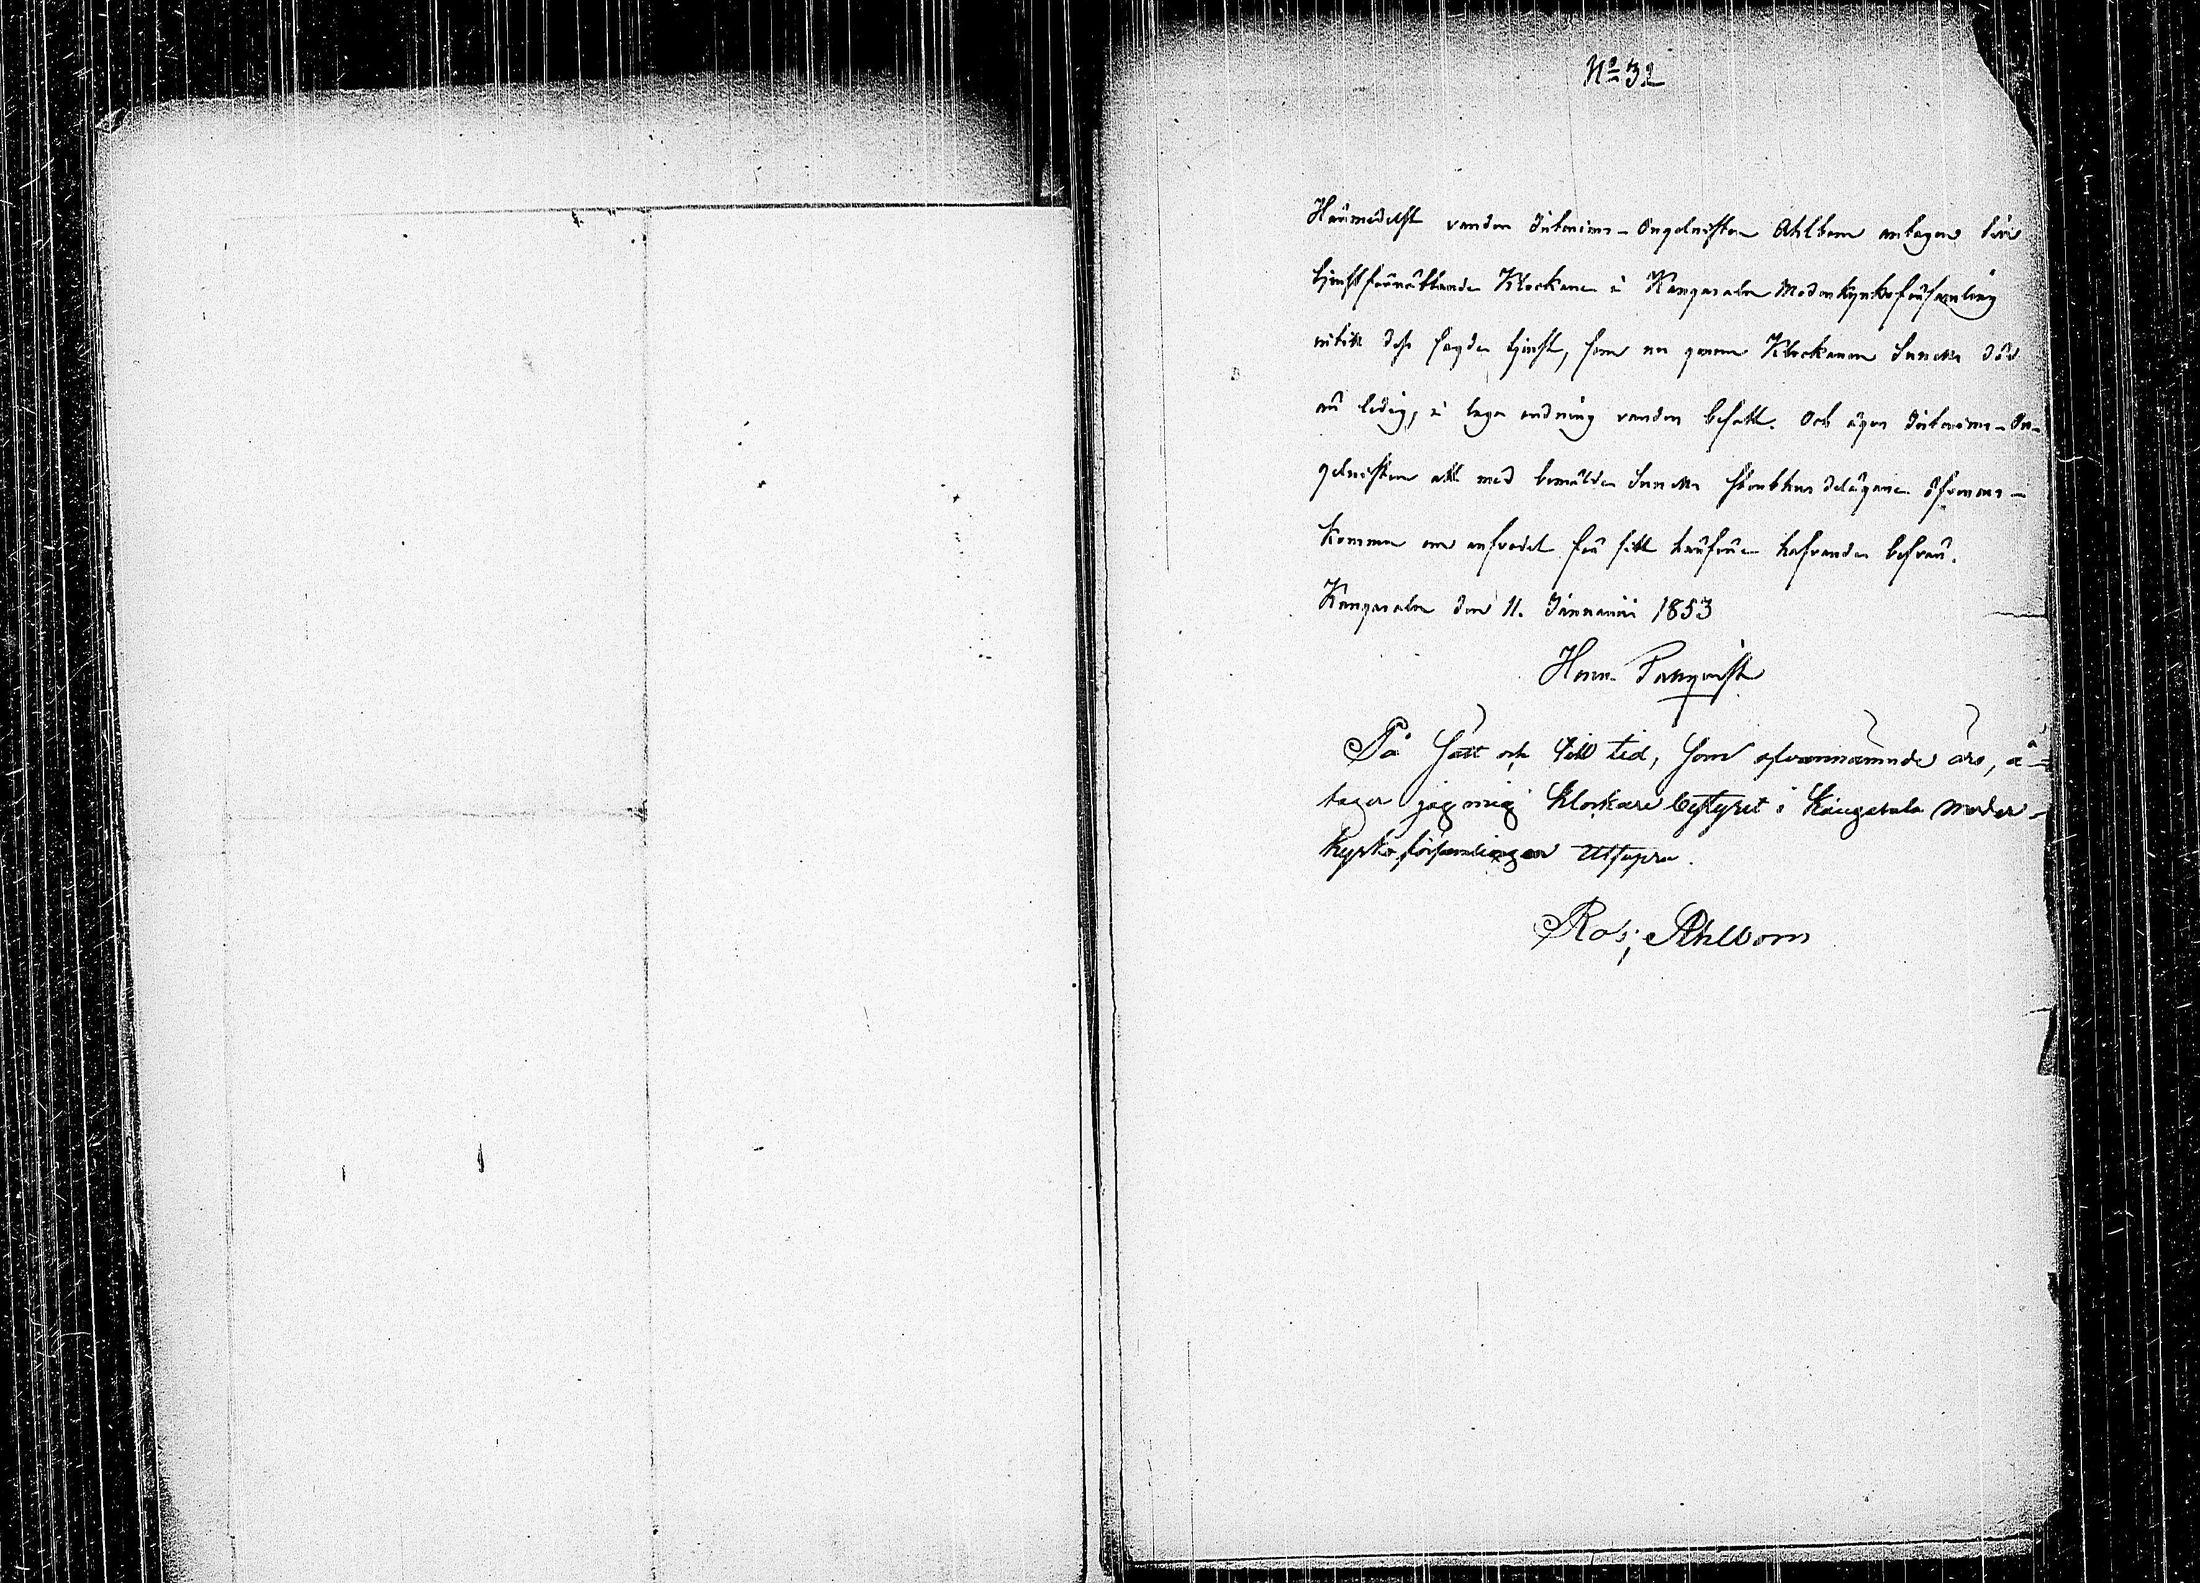 No 32
Härmedelst varder Interims-Orgelnisten Ahlbom antagen till
tjenstförrättande Klockare i Kangasala Moderkyrkoförsamling
intill dess sagde tjenst, som nu genom Klockaren död
är ledig, i laga ordning varder besatt. Och äger Interims-Or-
gelnisten att med bemälde sterbhus delägare öfverens-
komma om arfvodet för sitt härföre hafvande besvär.
Kangasala den 11. Januarii 1853
Henr.
På sätt och till tid, som ofvannämnde är, å-
tager jag mig Klockare bestyret i Kangasala moder-
kyrko församlingen Utsupra.
Rob; Ahlbom